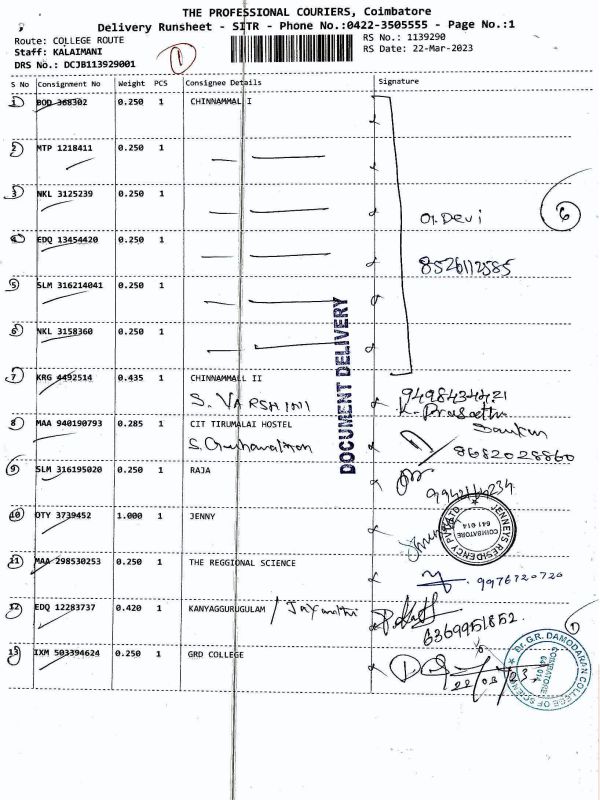 THE PROFESSIONAL COURIERS, Coimbatore
Delivery Runsheet - SITR - Phone No.:0422-3505555 - Page No.:1
Route: COLLEGE ROUTE
Staff: KALAIMANI
DRS No.: DCJB113929001
RS No.: 1139290
RS Date: 22-Mar-2023
1
S No Consignment No Weight PCS Consignee Details Signature
1 BOD 368302 0.250 1 CHINNAMMAL I
2 MTP 1218411 0.250 1
3 NKL 3125239 0.250 1
G. Devi
6
4 EDQ 13454420 0.250 1
8526112585
5 SLM 316214041 0.250 1
6 NKL 3158360 0.250 1
DOCUMENT DELIVERY
7 KRG 4492514 0.435 1 CHINNAMMALL II
S. VARSHINI
9498434421
8 MAA 940190793 0.285 1 CIT TIRUMALAI HOSTEL
8682028860
9 SLM 316195020 0.250 1 RAJA
10 OTY 3739452 1.000 1 JENNY
JENNEYS RESIDENCY PVT LTD
COIMBATORE
641 014
11 MAA 298530253 0.250 1 THE REGGIONAL SCIENCE
9976720720
12 EDQ 12283737 0.420 1 KANYAGGURUGULAM / Jayanthi
6369951852
1
13 IXM 503394624 0.250 1 GRD COLLEGE
22/03/23
Dr. G.R. DAMODARAN COLLEGE OF SCIENCE
COIMBATORE
641 014